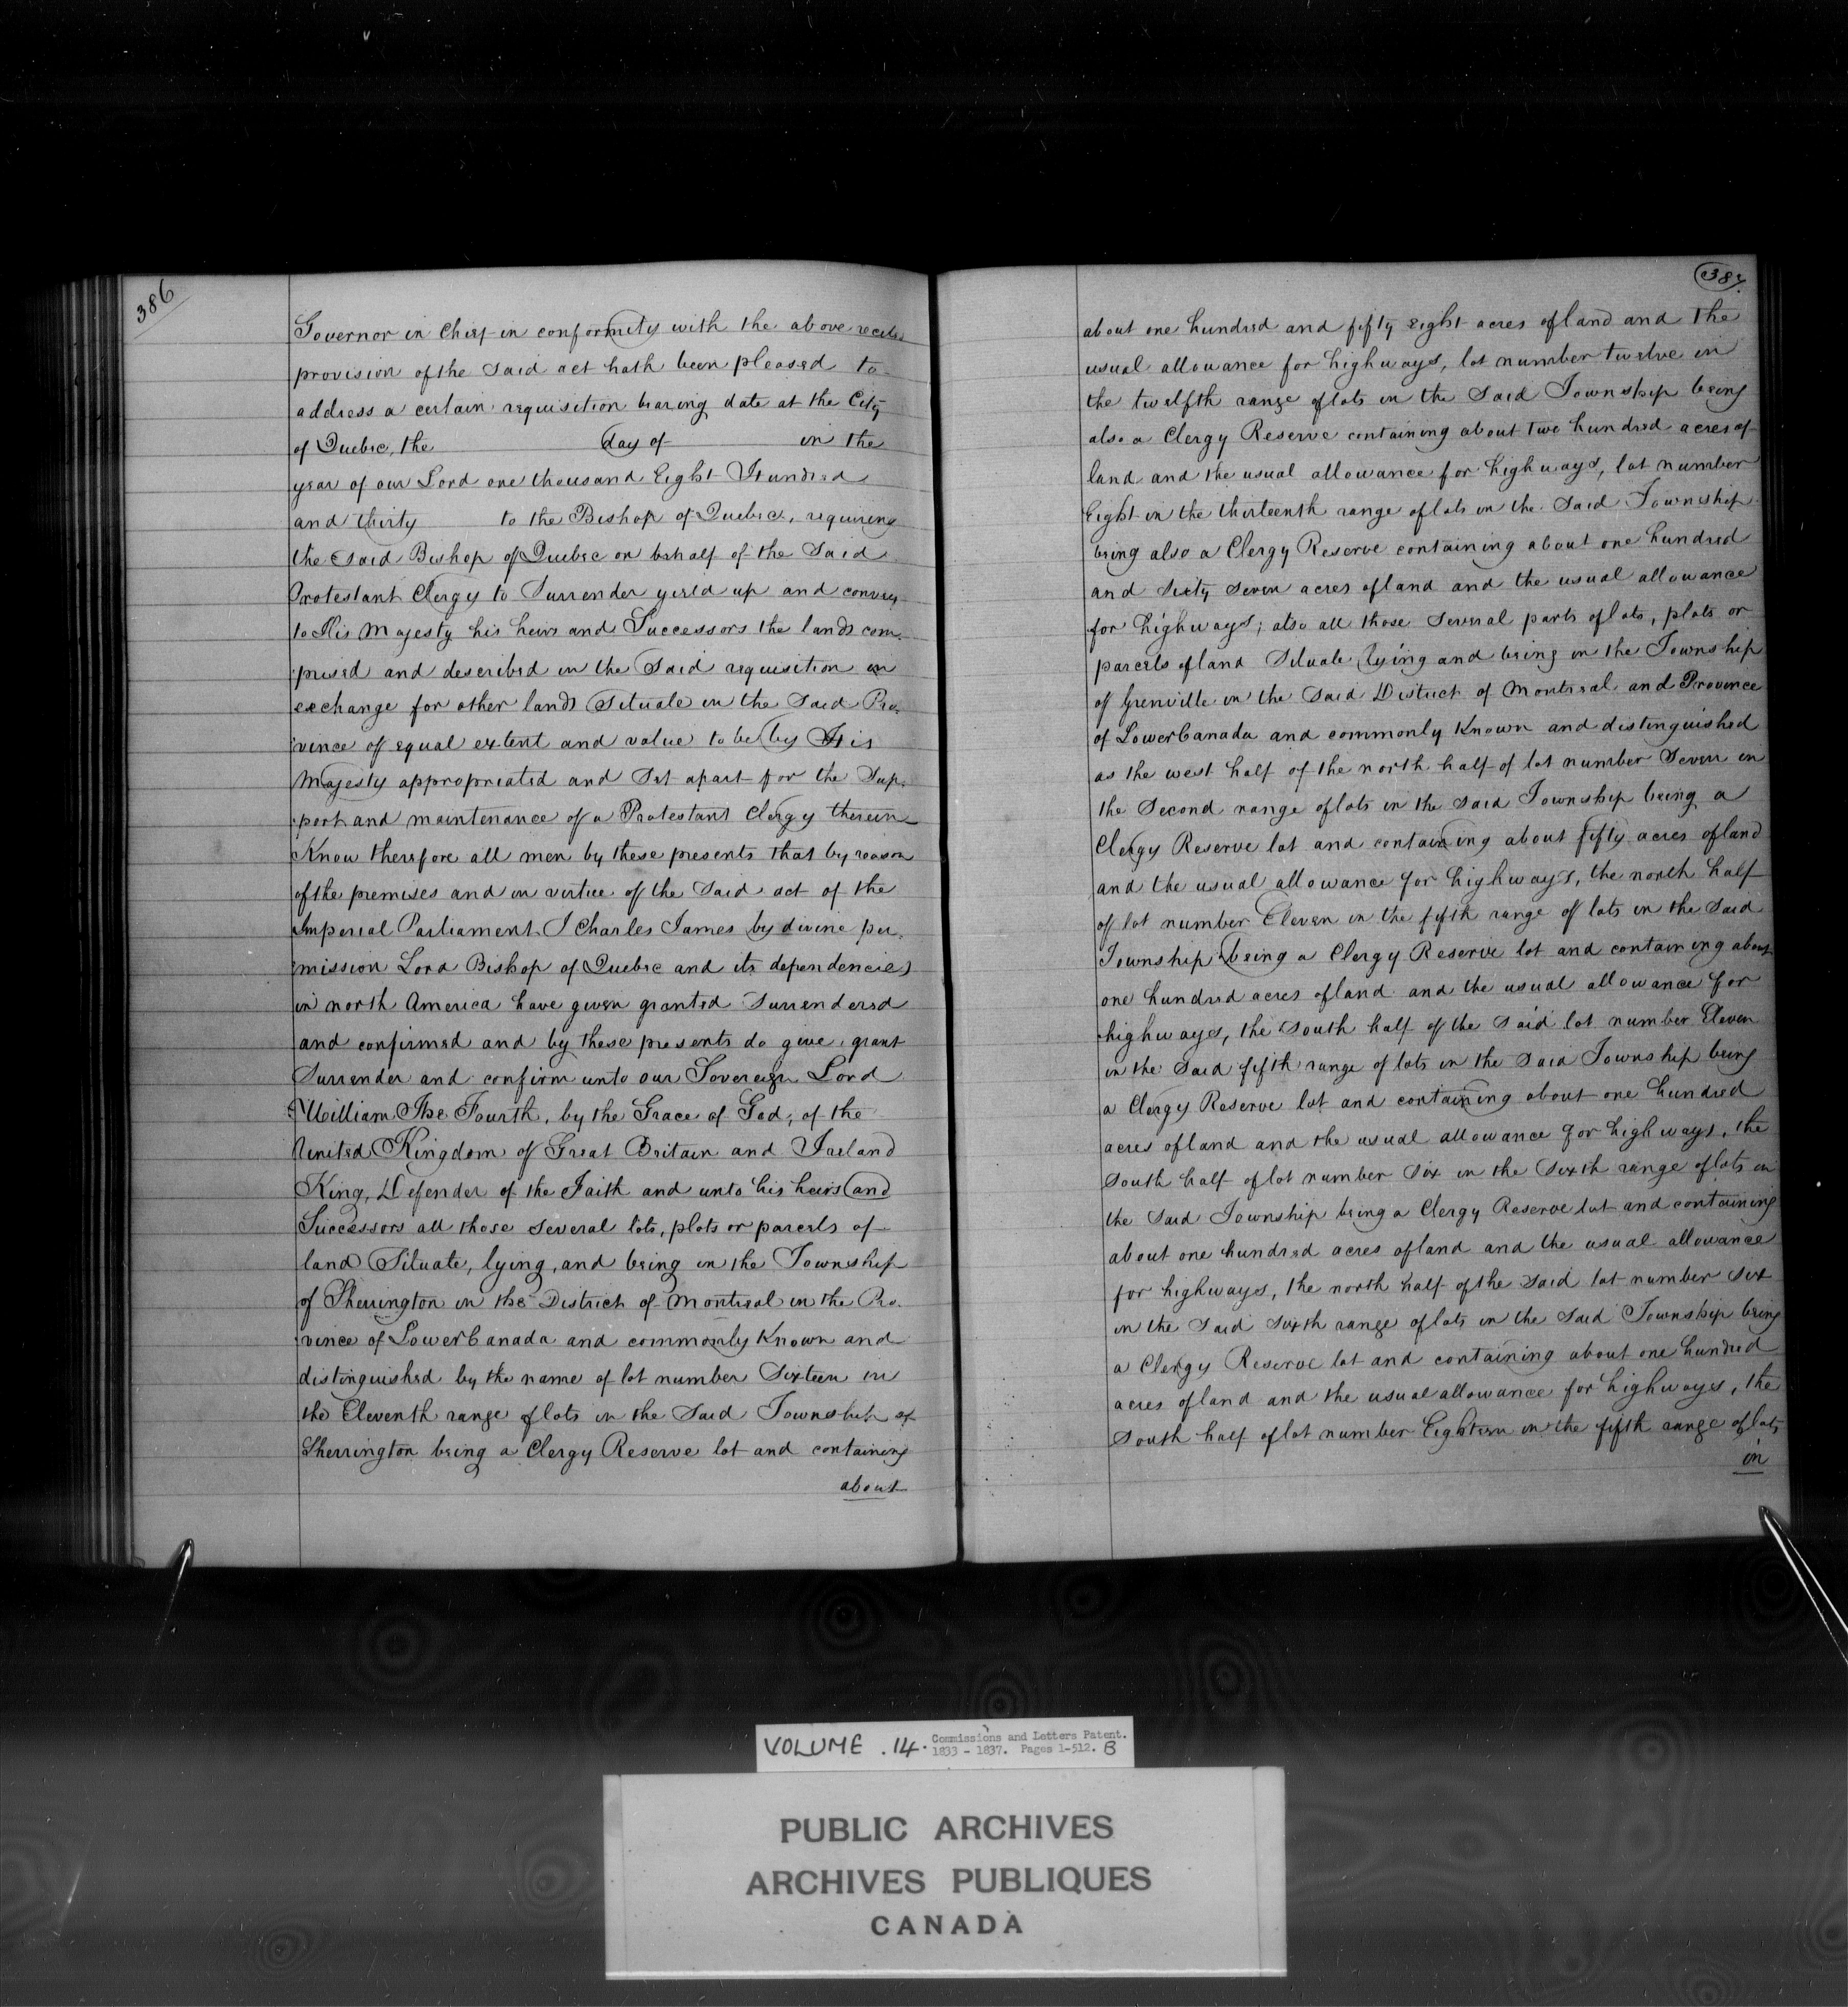 386
Governor in Chief in conformity with the above recited
provision of the Said act hath been pleased to
address a certain requisition bearing date at the City
of Quebec, the day of in the
year of our Lord one thousand Eight Hundred
and thirty to the Bishop of Quebec, requiring
the Said Bishop of Quebec on behalf of the Said
Protestant Clergy to Surrender yield up and convey
to His Majesty his heirs and Successors the lands com-
-prised and described in the Said requisition in
exchange for other lands Situate in the Said Pro-
-vince of equal extent and value to be by His
Majesty appropriated and Set apart for the Sup-
-port and maintenance of a Protestant Clergy therein
Know therefore all men by these presents that by reason
of the premises and in virtue of the Said act of the
Imperial Parliament I Charles James by divine per-
-mission Lord Bishop of Quebec and its dependencies
in north America have given granted Surrendered
and confirmed and by these presents do give, grant
Surrender and confirm unto our Sovereign Lord
William The Fourth, by the Grace of God, of the
United Kingdom of Great Britain and Ireland
King, Defender of the Faith and unto his heirs and
Successors all those Several lots, plots or parcels of
land Situate, lying, and being in the Township
of Sherrington in the District of Montreal in the Pro-
-vince of Lower Canada and commonly Known and
distinguished by the name of lot number Sixteen in
the Eleventh range of lots in the Said Township of
Sherrington being a Clergy Reserve lot and containing
about
387
about one hundred and fifty eight acres of land and the
usual allowance for highways, lot number twelve in
the twelfth range of lots in the Said Township being
also a Clergy Reserve containing about two hundred acres of
land and the usual allowance for highways, lot number
Eight in the thirteenth range of lots in the Said Township
being also a Clergy Reserve containing about one hundred
and Sixty Seven acres of land and the usual allowance
for highways; also all those Several parts of lots, plots or
parcels of land Situate lying and being in the Township
of Grenville in the Said District of Montreal and Province
of Lower Canada and commonly Known and distinguished
as the west half of the north half of lot number Seven in
the Second range of lots in the Said Township being a
Clergy Reserve lot and containing about fifty acres of land
and the usual allowance for highways, the north half
of lot number Eleven in the fifth range of lots in the Said
Township being a Clergy Reserve lot and containing about
one hundred acres of land and the usual allowance for
highways, the South half of the Said lot number Eleven
in the Said fifth range of lots in the Said Township being
a Clergy Reserve lot and containing about one hundred
acres of land and the usual allowance for highways, the
South half of lot number Six in the Sixth range of lots in
the Said Township being a Clergy Reserve lot and containing
about one hundred acres of land and the usual allowance
for highways, the north half of the Said lot number Six
in the Said Sixth range of lots in the Said Township being
a Clergy Reserve lot and containing about one hundred
acres of land and the usual allowance for highways, the
South half of lot number Eighteen in the fifth range of lots
in
VOLUME .14. Commissions and Letters Patent.
1833 - 1837. Pages 1-512. B
PUBLIC ARCHIVES
ARCHIVES PUBLIQUES
CANADA